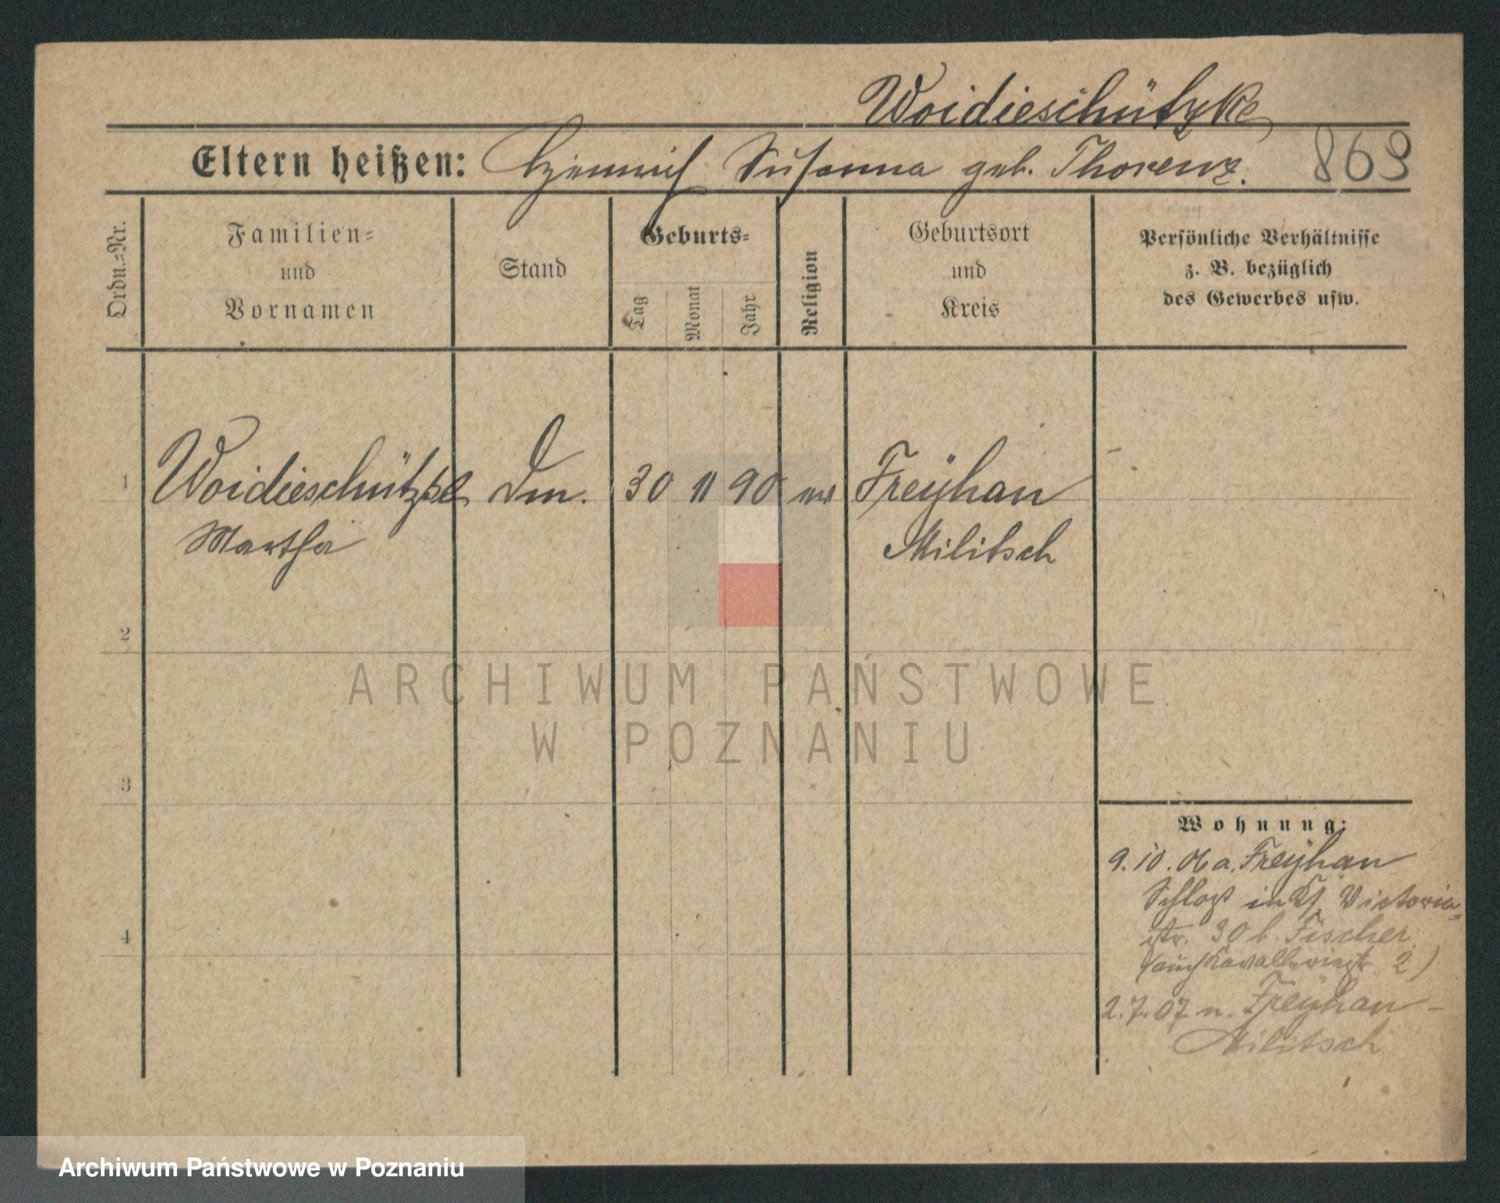 Woidieschützke
Eltern heißen: Heinrich Susanna geb. Thorenz. 869
Ordn.-Nr.
Familien-
und
Vornamen
Stand
Geburts-
Tag
Monat
Jahr
Religion
Geburtsort
und
Kreis
Persönliche Verhältnisse
z. B. bezüglich
des Gewerbes usw.
1 Woidieschützke 30 11 90 Freyhan
Martha Militsch
2
ARCHIWUM PAŃSTWOWE
W POZNANIU
3
Wohnung:
9.10.06 a. Freyhan
Victoria-
str. 30 b. Fischer
2)
4
2.7.07 n. Freyhan-
Militsch
Archiwum Państwowe w Poznaniu